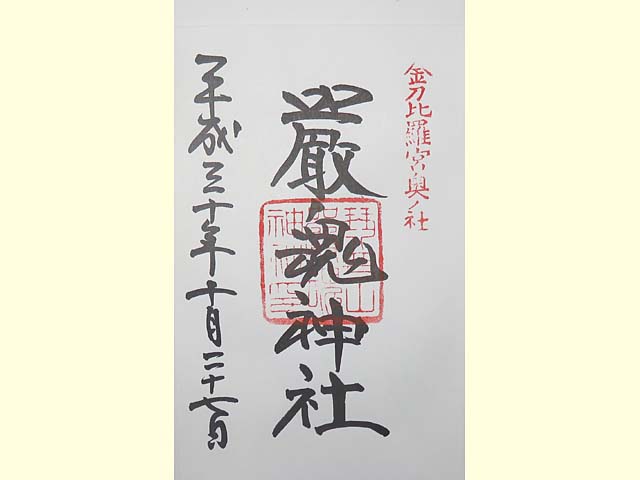 金刀比羅宮奥ノ社
巌魂神社
平成三十年十月二十七日